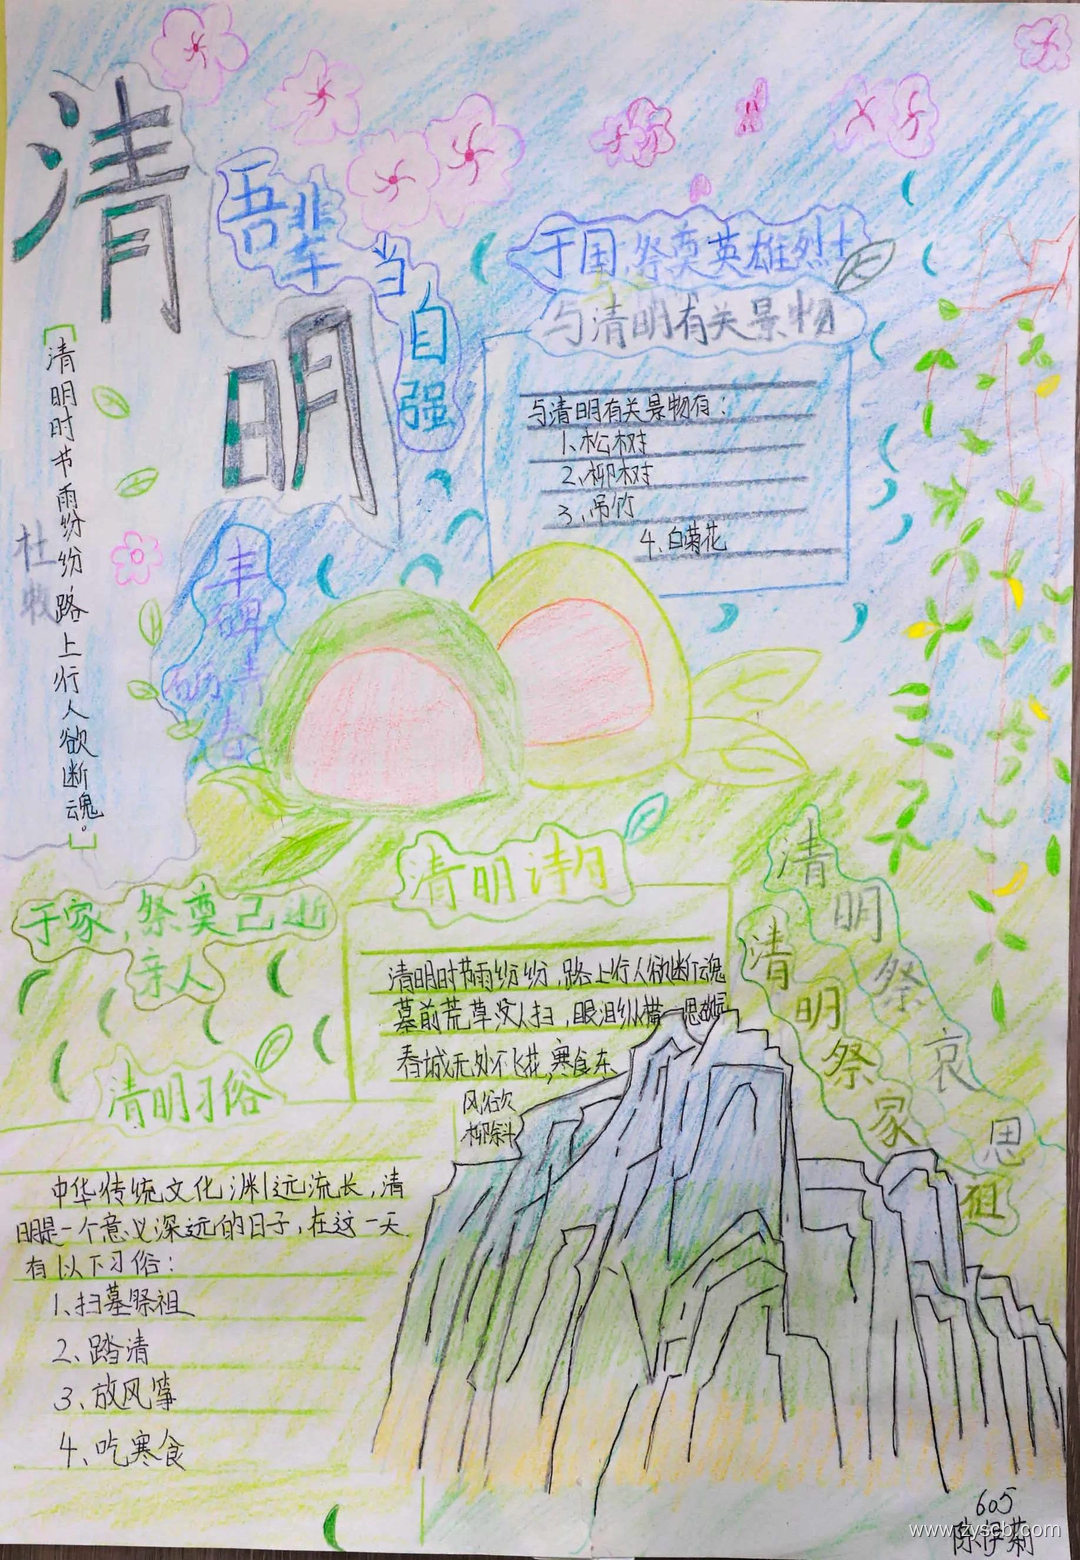 清明
吾辈当自强
于国,祭奠英雄烈士
与清明有关景物
与清明有关景物有:
1、松树
2、柳树
3、吊竹
4、白菊花
清明时节雨纷纷路上行人欲断魂。
杜牧
丰碑
砺青春
于家,祭奠己逝
亲人
清明诗句
清明时节雨纷纷,路上行人欲断魂
墓前荒草没人扫,眼泪纵横
春城无处不飞花,寒食东
风
柳斜
清明祭哀思
清明祭家祖
清明习俗
中华传统文化渊远流长,清
明是一个意义深远的日子,在这一天
有以下习俗:
1、扫墓祭祖
2、踏清
3、放风筝
4、吃寒食
605
www.zyscb.com